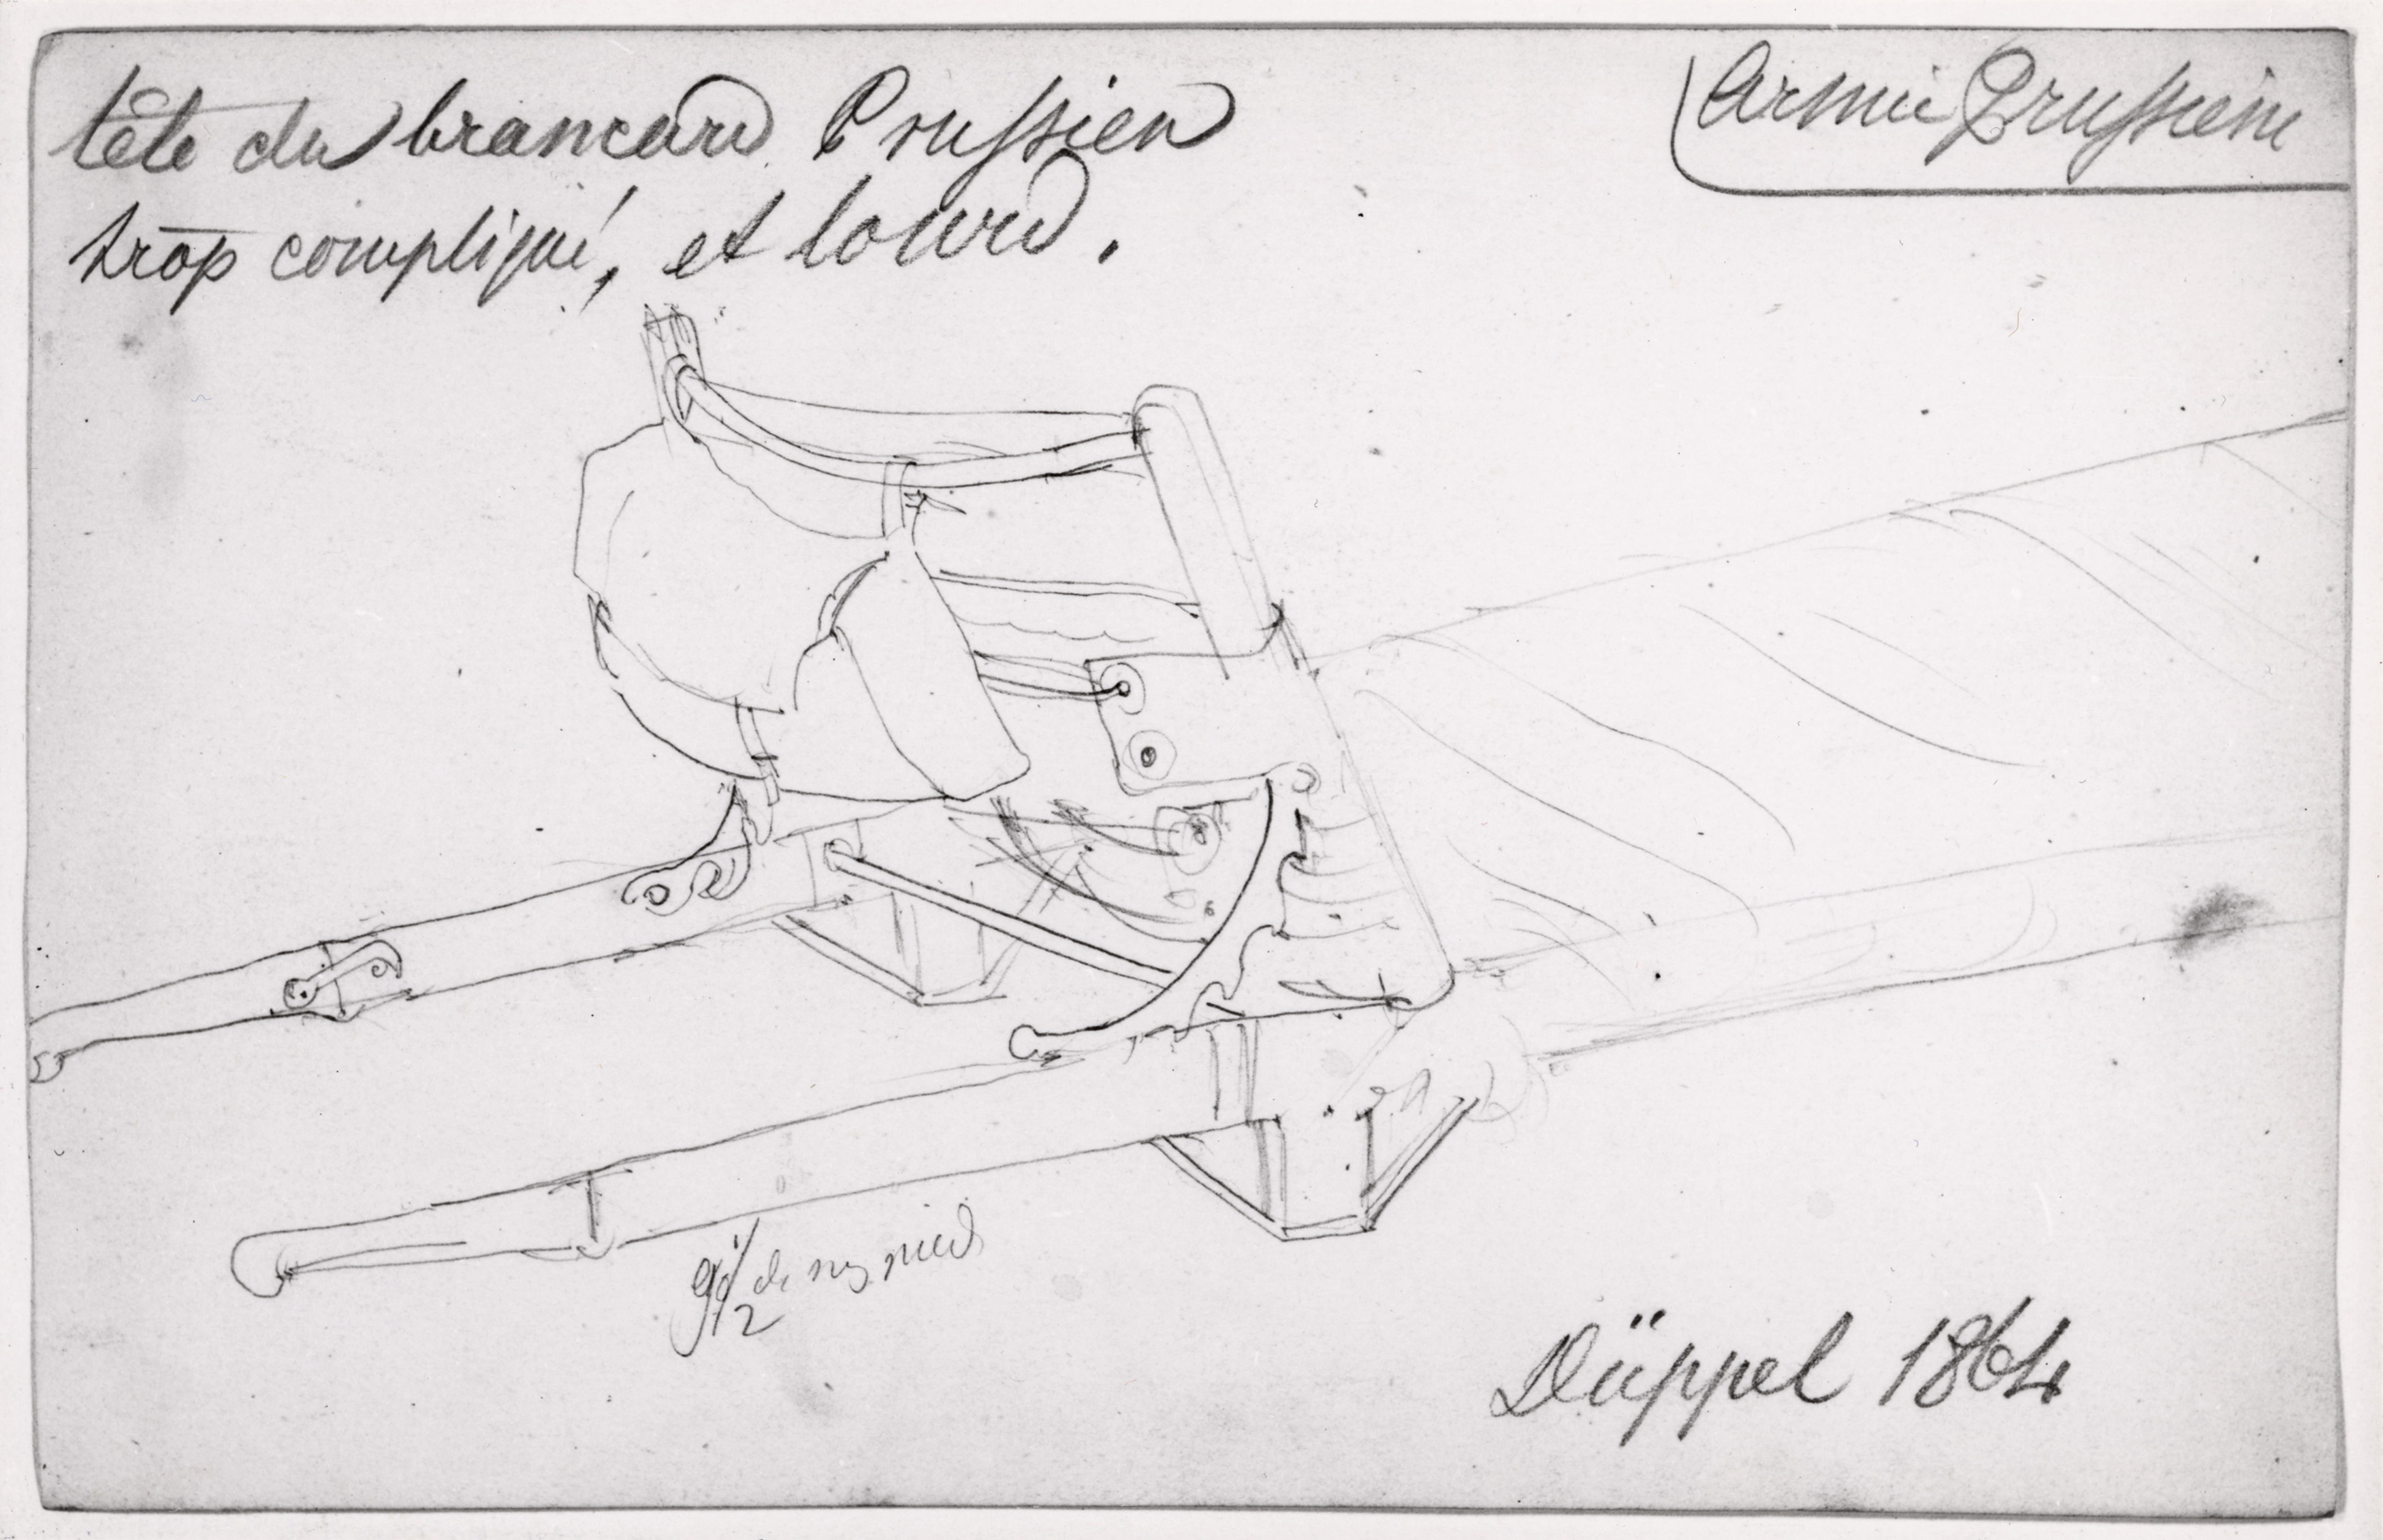 tête du brancard Prussien
trop compliqué, et lourd.
Armée Prussienne
9 1/2 de nos pieds
Düppel 1864